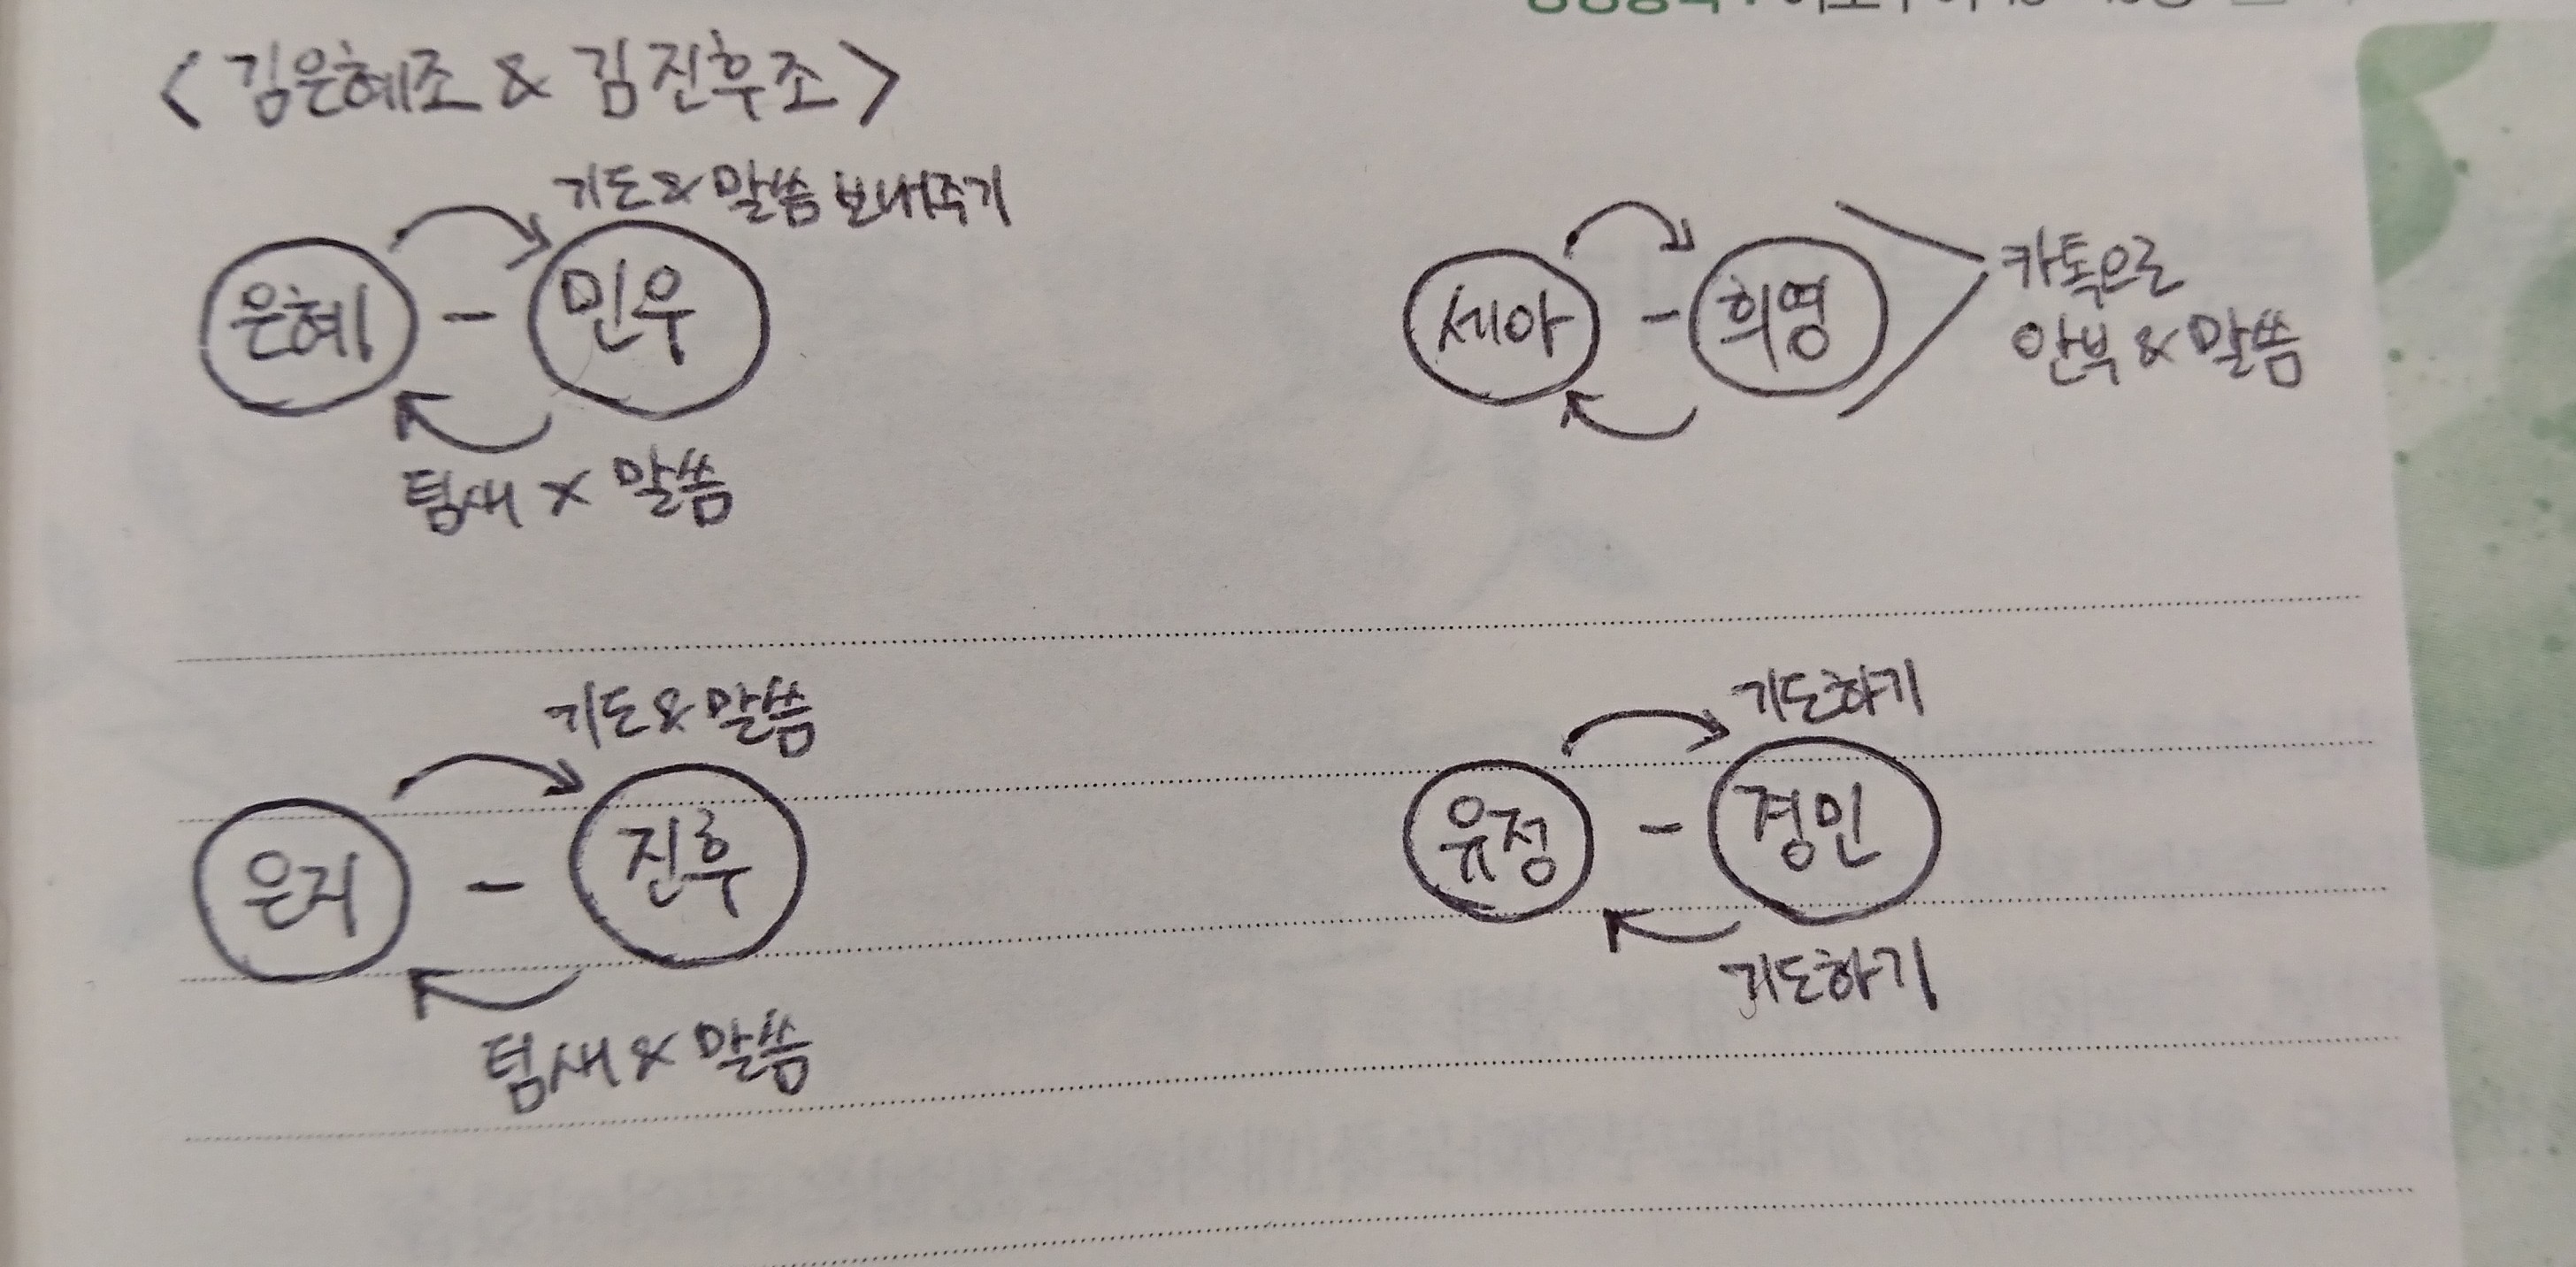 <김은혜조 & 김진후조>
기도 & 말씀 보내주기
은혜 - 민우
텀새 X 말씀
세아 - 희영
카톡으로
안부 & 말씀
기도 & 말씀
은지 - 진후
텀새 & 말씀
기도하기
유정 - 경민
기도하기